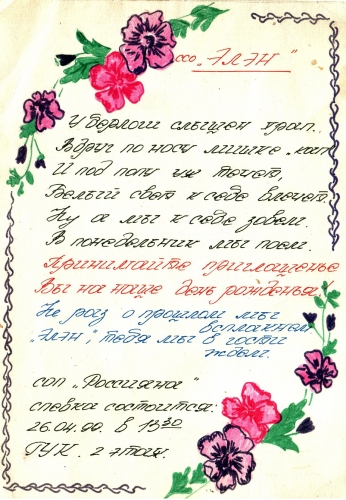 ССО „ЭЛЭН"
У берлоги слышен храп.
Вдруг по носу мишке „кап"
И под попу уж течет,
Белый свет к себе влечет.
Ну а мы к себе зовем.
В понедельник мы поем.
Принимайте приглашенье
Вы на наше день рожденья.
Не раз о прошлом мы
всплакнем
„ЭЛЭН", тебя мы в гости
ждем.
СОП „Россияна"
спевка состоится:
26.04.90. в 18 30
ГУК. 2 этаж.